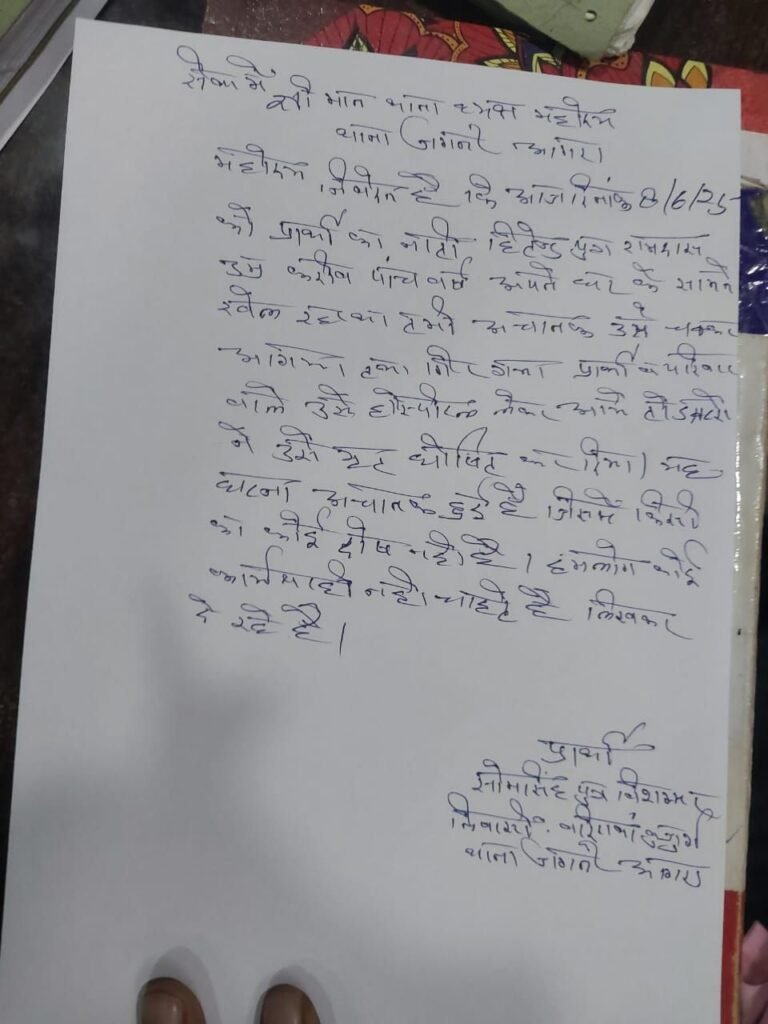 सेवा में
श्री मान थाना ध्यक्ष महोदय
थाना जगनेर आगरा
महोदय निवेदन है कि आज दिनांक 8/6/25
को प्रार्थी का नाती पुत्र रामदास
उम्र करीब पांच वर्ष अपने घर के सामने
खेल रहा था तभी अचानक उसे चक्कर
आगया तथा गिर गया प्रार्थी व परिवार
वाले उसे होस्पीटल लेकर आये तो डाक्टरो
ने उसे मृत घोषित कर दिया। यह
घटना अचानक हुई है जिसमें किसी
का कोई दोष नही है। हमलोग कोई
कार्यवाही नही चाहते है लिखकर
दे रहे है।
प्रार्थी
सोमासिंह पुत्र
निवासी बुजुर्ग
थाना जगनेर आगरा